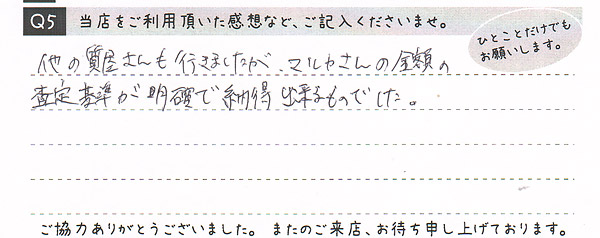 Q5 当店をご利用頂いた感想など、ご記入くださいませ。
ひとことだけでも
お願いします。
他の質屋さんも行きましたが、マルカさんの金額の
査定基準が明確で納得出来るものでした。
ご協力ありがとうございました。 またのご来店、お待ち申し上げております。